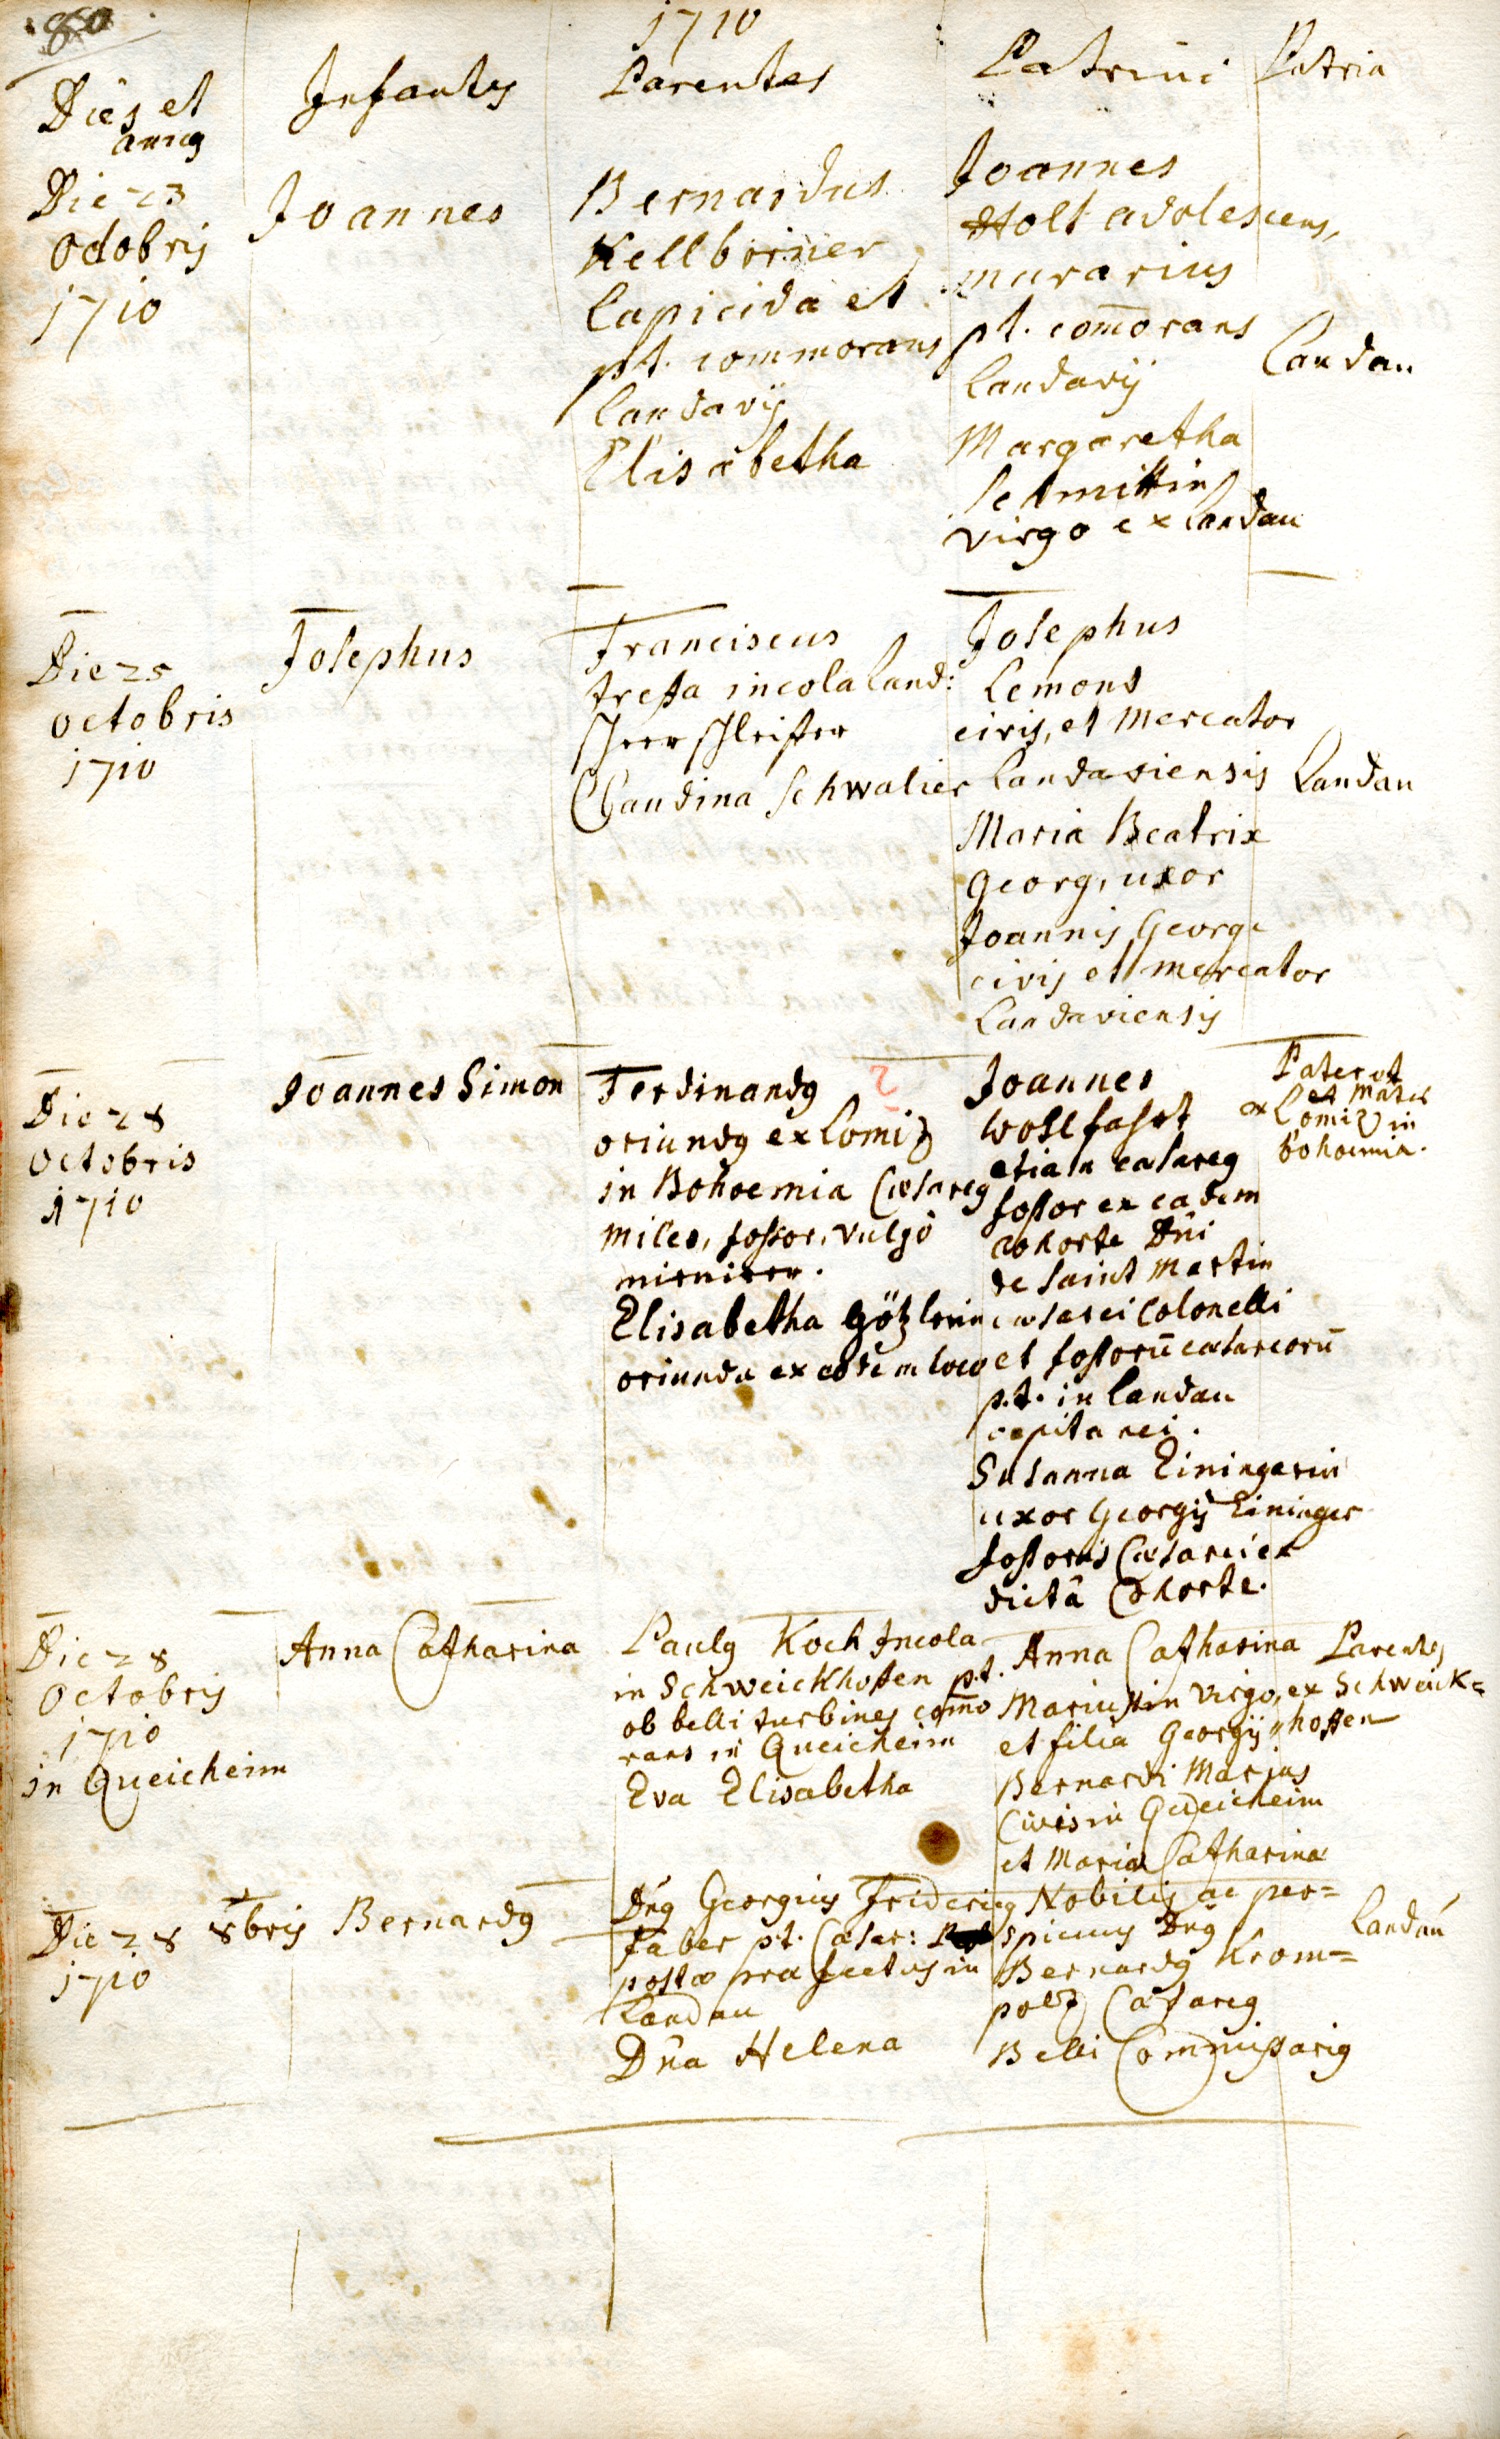 80
1710
Dies et
annus
Infantes
Parentes
Patrini
Patria
Die 23
Octobris
1710
Joannes
Bernardus
Kellborner
lapicida et
pt. commorans
Landavij
Elisabetha
Joannes
Holt adolescens,
murarius
pt. com̄orans
Landavij
Margaretha
Schmittin
virgo ex Landau
Landau
Die 25
octobris
1710
Josephus
Franciscus
tresta incola Land:
Claudina Schwalier
Josephus
Lemont
civis, et Mercator
Landaviensis
Maria Beatrix
Georg, uxor
Joannis Georg
civis et mercator
Landaviensis
Landau
Die 28
octobris
1710
Joannes Simon
Ferdinandus
oriundus ex Lomiz
in Bohoemia Cæsareus
miles, fossor, vulgò
minirer.
Elisabetha Götzlerin
oriunda ex eodem loco
Joannes
wohlfahrt
etiam cæsareus
fossor ex eadem
cohorte Dn̄i
de saint Martin
cæsarei Colonelli
et fossorū cæsareorū
p.t. in Landau
capitanei.
Susanna Einingerin
uxor Georgij Eininger
fossoris Cæsarei ex
dictâ Cohorte.
Pater et
et Mater
ex Lomiz in
bohoemia.
Die 28
Octobris
1710
in Queicheim
Anna Catharina
Paulus Koch Incola
in Schweickhoffen p.t.
ob belli turbines com̄o
rans in Queicheim
Eva Elisabetha
Anna Catharina
Mariussin virgo,
et filia Georgij
Bernardi Marius
Civis in Queicheim
et Maria Catharina
Parentes
ex Schweick=
hoffen
Die 28 8bris
1710
Bernardus
Dn̄s Georgius Fridericus
Faber p.t. Cæsar:
postæ præfectus in
Landau
Dn̄a Helena
Nobilis ac per=
spicuus Dn̄s
Bernardus Krom=
polz Cæsareus
Belli Commissarius
Landau